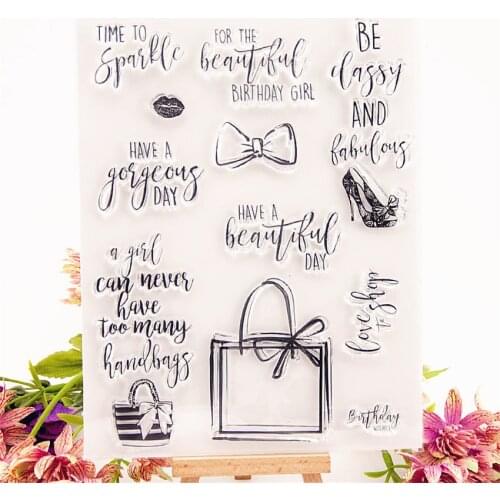 TIME TO
Sparkle
FOR THE
beautiful
BIRTHDAY GIRL
BE
classy
AND
fabulous
HAVE A
gorgeous
DAY
HAVE A
beautiful
DAY
a girl
can never
have
too many
handbags
love to shop
Birthday
WISHES